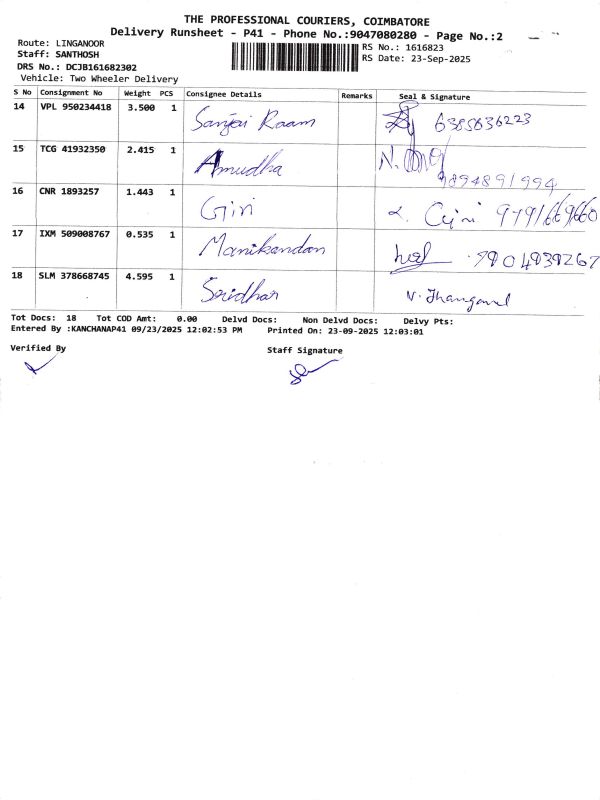 THE PROFESSIONAL COURIERS, COIMBATORE
Delivery Runsheet - P41 - Phone No.:9047080280 - Page No.:2
Route: LINGANOOR
Staff: SANTHOSH
DRS No.: DCJB161682302
Vehicle: Two Wheeler Delivery
RS No.: 1616823
RS Date: 23-Sep-2025
S No Consignment No Weight PCS Consignee Details Remarks Seal & Signature
14 VPL 950234418 3.500 1 Sanjai Raam 6385836223
15 TCG 41932350 2.415 1 Amudha N. 9894891994
16 CNR 1893257 1.443 1 Giri 9791669660
17 IXM 509008767 0.535 1 Manikandan
18 SLM 378668745 4.595 1 Sridhar V. Thangavel
Tot Docs: 18 Tot COD Amt: 0.00 Delvd Docs: Non Delvd Docs: Delvy Pts:
Entered By :KANCHANAP41 09/23/2025 12:02:53 PM Printed On: 23-09-2025 12:03:01
Verified By Staff Signature